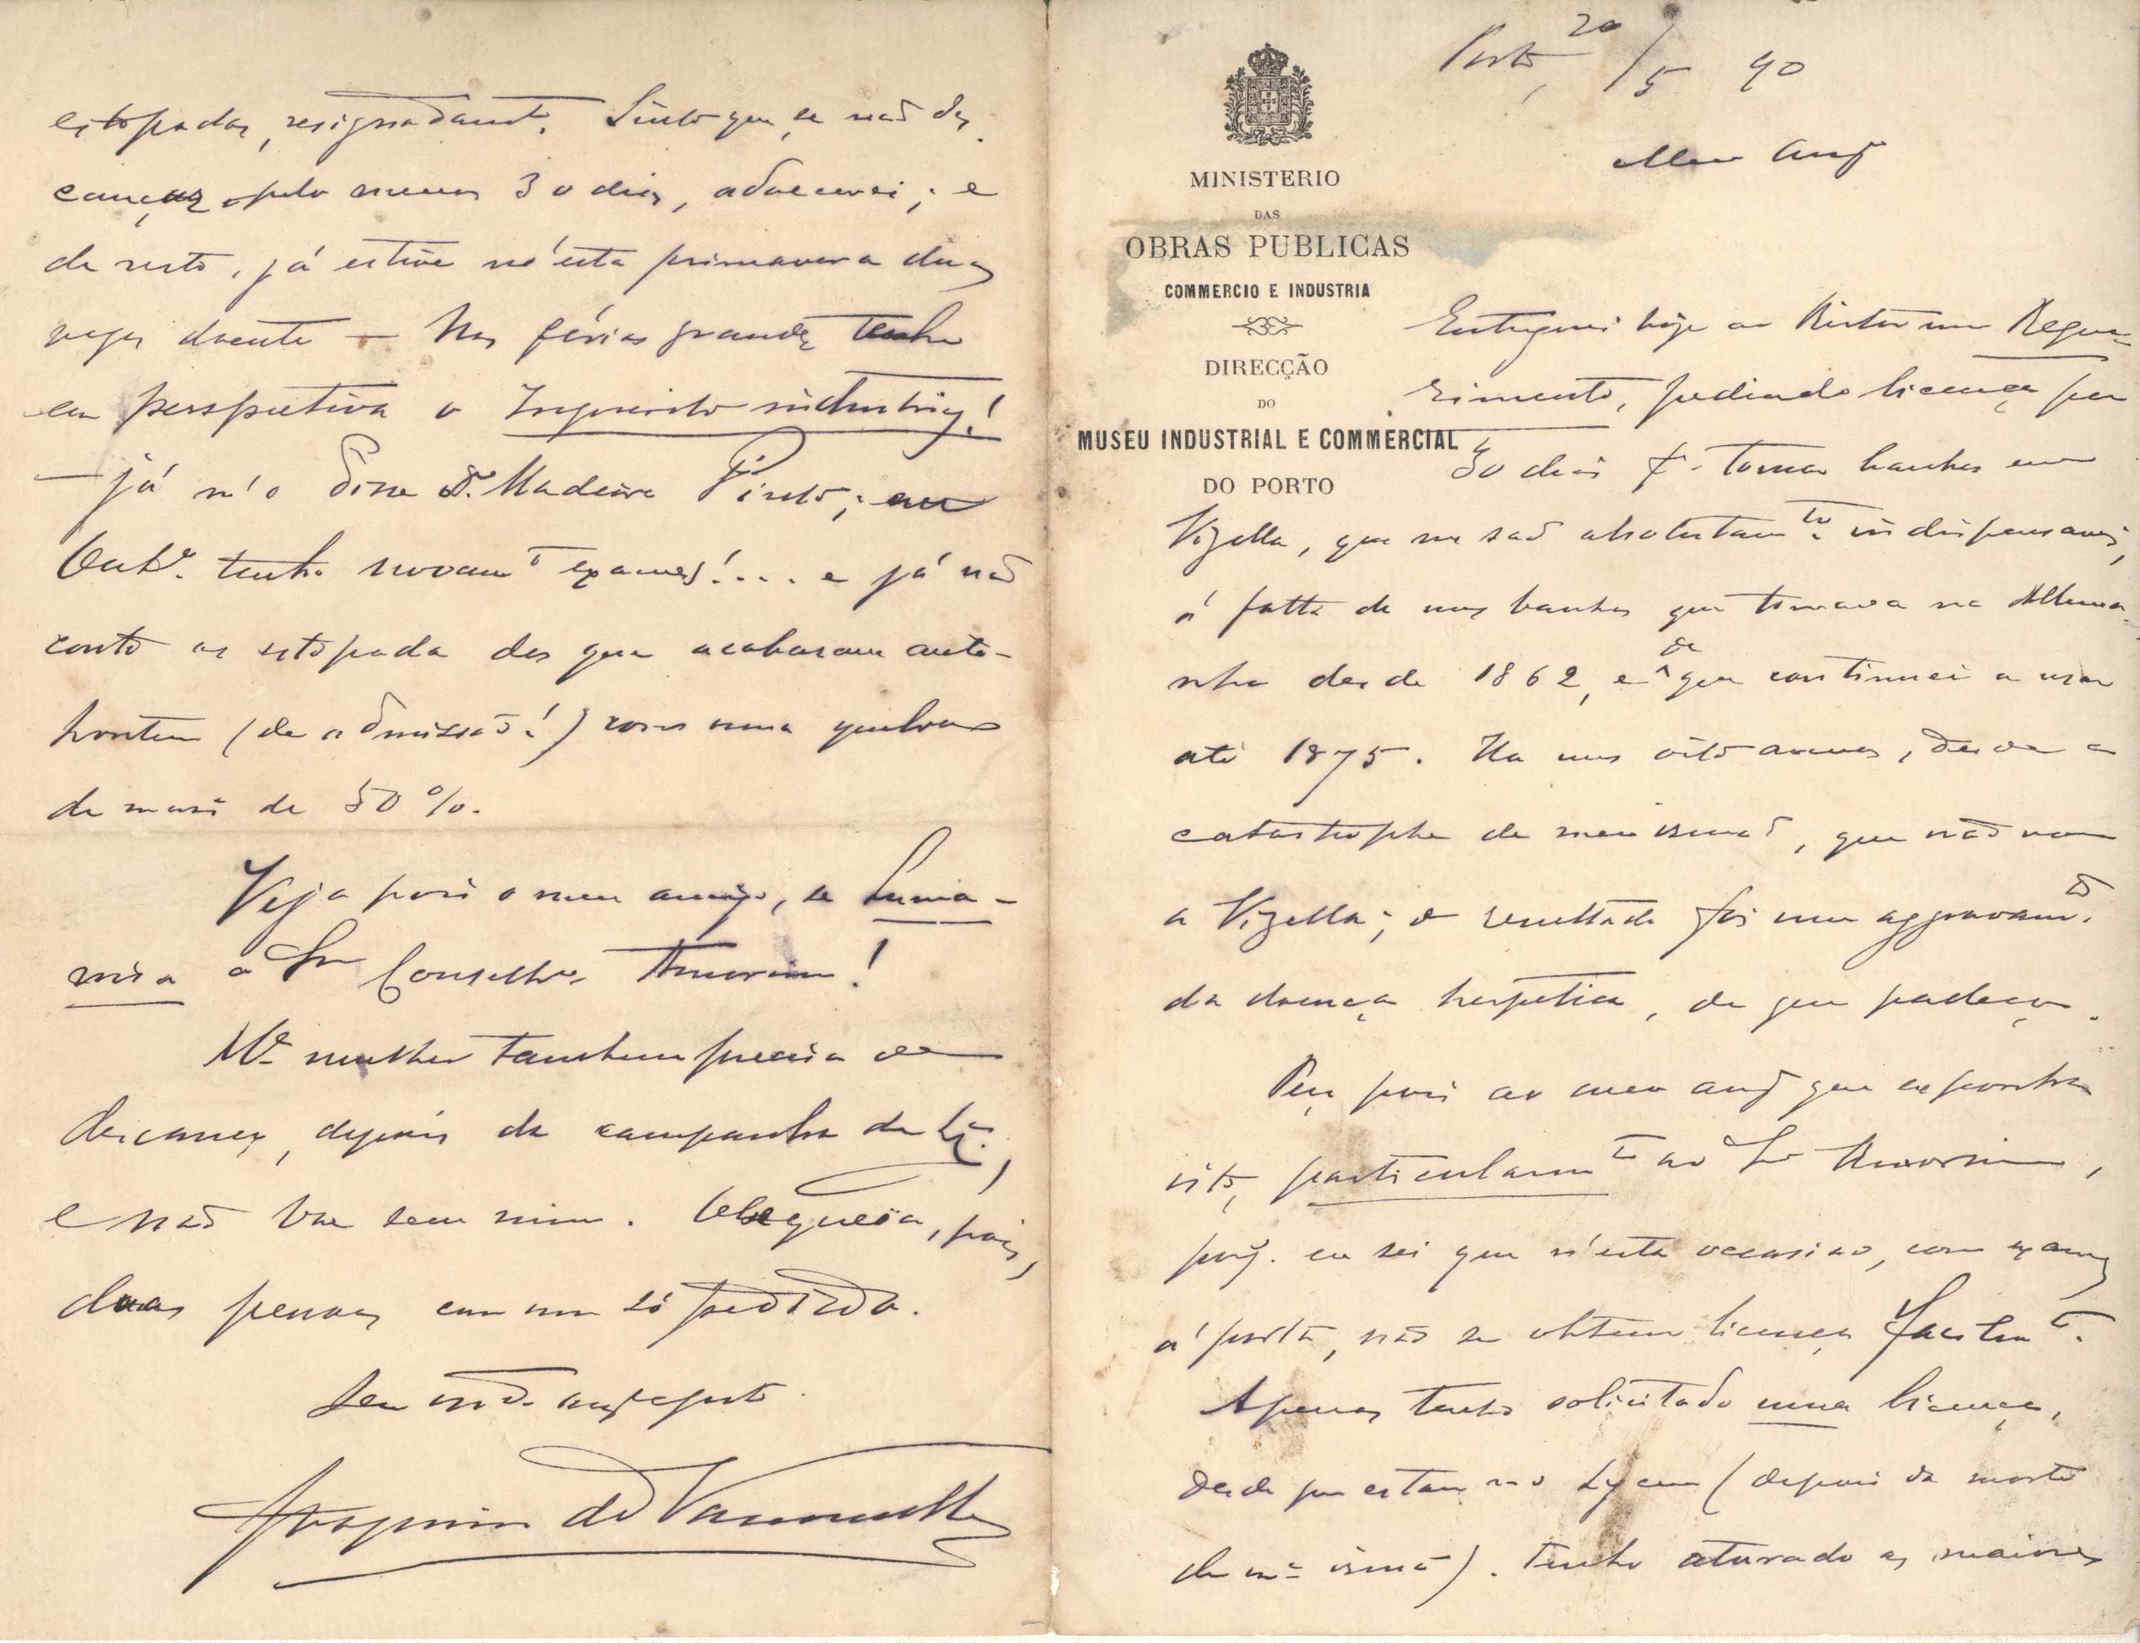 Porto, 20/5 90
MINISTERIO
DAS
OBRAS PUBLICAS
COMMERCIO E INDUSTRIA
DIRECÇÃO
DO
MUSEU INDUSTRIAL E COMMERCIAL
DO PORTO
Meu amº
Entreguei hoje ao Reitor um Reque-
rimento, pedindo licença por
30 dias pª tomar banhos em
Vizella, que me são absolutamte indispensaveis,
á falta de uns banhos que tomava na Allema-
nha desde 1862, e de que continuei a usar
até 1875. Ha uns oito annos, desde a
catastrophe de meu irmão, que não vou
a Vizella; o resultado foi um aggravamto
da doença herpetica, de que padeço.
Peço pois ao meu amº que exponha
isto, particularmte ao Snr Amorim,
porq. eu sei que n'esta occasião, com exames
á porta, não se obtem licença facilmte.
Apenas tenho solicitado uma licença,
desde que estou no Lyceu (depois da morte
de mª irmã). Tenho aturado as maiores
estopadas, resignadamte. Sinto que se não des-
cançar pelo menos 30 dias, adoecerei; e
de resto, já estive n'esta primavera duas
vezes doente — Nas férias grandes tenho
em perspectiva o Inquerito industrial!
— já m'o disse o Dr. Madeira Pinto; em
Outbº. tenho novamte exames!.... e já não
conto as estopada dos que acabaram ante-
hontem (de admissão!) com uma quebra
de mais de 50 %.
Veja pois o meu amigo, se
o Snr Conselhº Amorim!
Mª mulher tambem precisa de
descanço, depois da campanha da
e não vae sem mim. Obsequeia, pois,
duas pessoas com um só pedido.
Seu amº
Joaquim de Vasconcellos